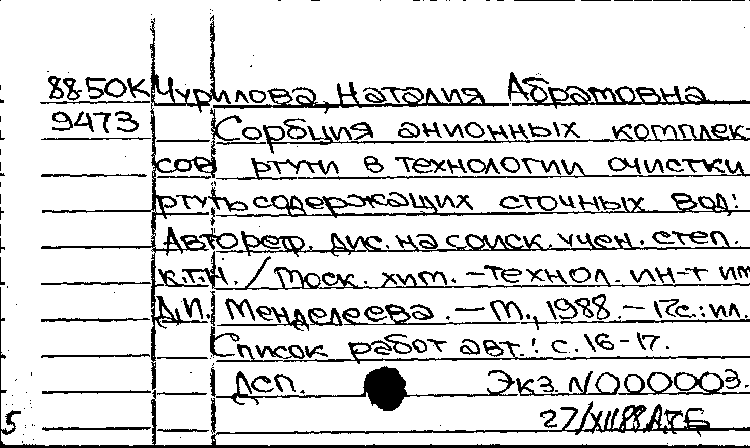 88-50К Чурилова, Наталия Абрамовна
9473 Сорбция анионных комплек
сов ртути в технологии очистки
ртутьсодержащих сточных вод:
Автореф. дис. на соиск. учен. степ.
к.т.н. / Моск. хим.-технол. ин-т им
Д.И. Менделеева. — М., 1988. — 17с.: ил.
Список работ авт.: с. 16-17.
Дсп. Экз. N000003.
27/XII88
5